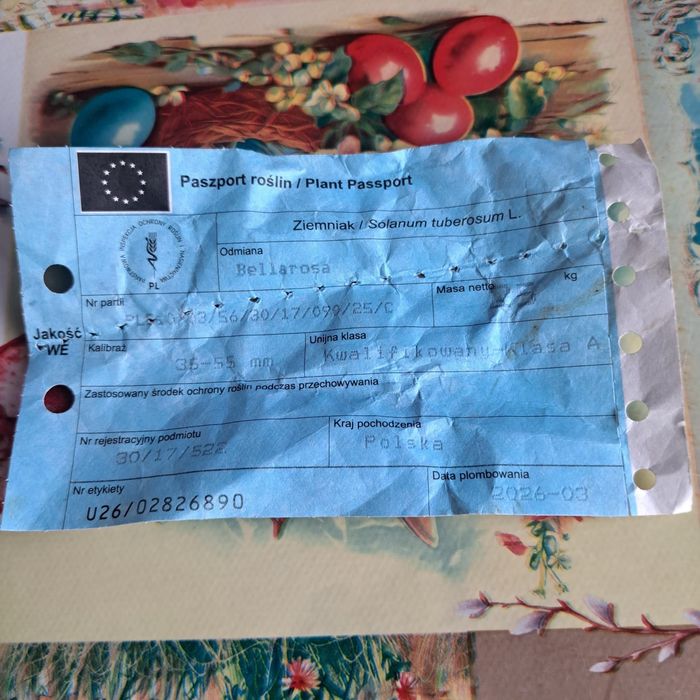 Paszport roślin / Plant Passport
PAŃSTWOWA INSPEKCJA OCHRONY ROŚLIN I NASIENNICTWA
PL
Ziemniak / Solanum tuberosum L.
Odmiana
Bellarosa
Nr partii
/56/30/17/099/25/C
Masa netto
kg
Jakość
WE
Kalibraż
35-55 mm
Unijna klasa
Kwalifikowany-klasa A
Zastosowany środek ochrony roślin podczas przechowywania
Nr rejestracyjny podmiotu
30/17/522
Kraj pochodzenia
Polska
Nr etykiety
U26/02826890
Data plombowania
2026-03